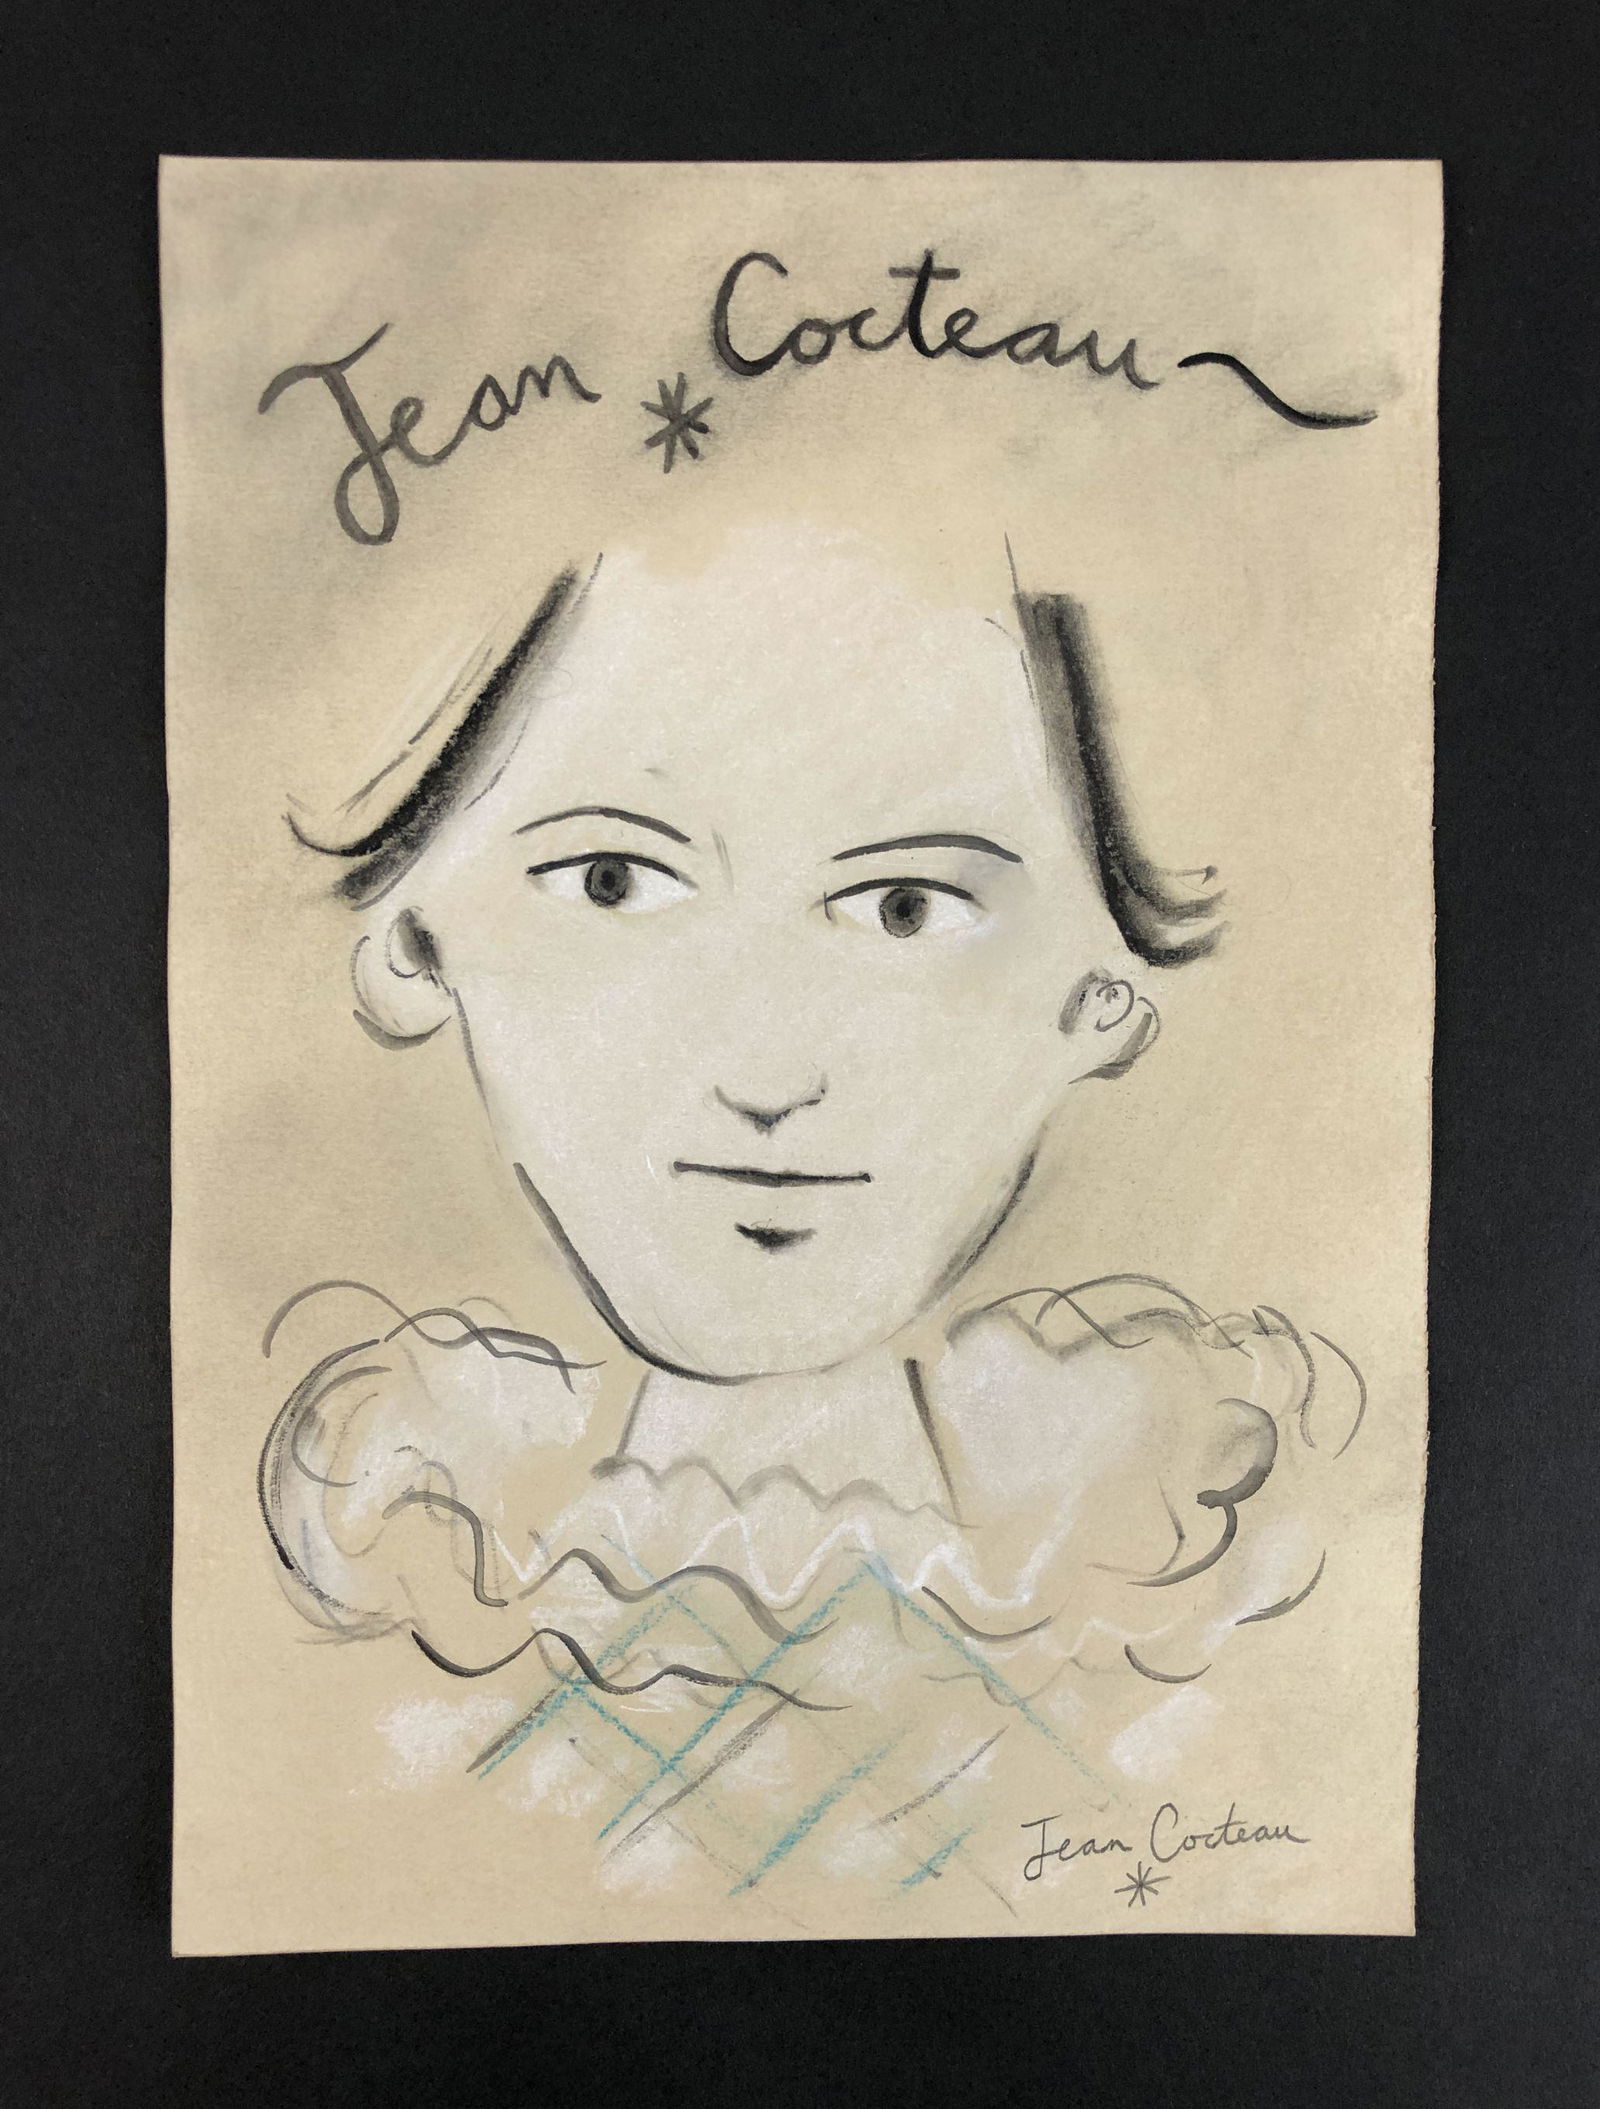 Jean * Cocteau
Jean Cocteau
*